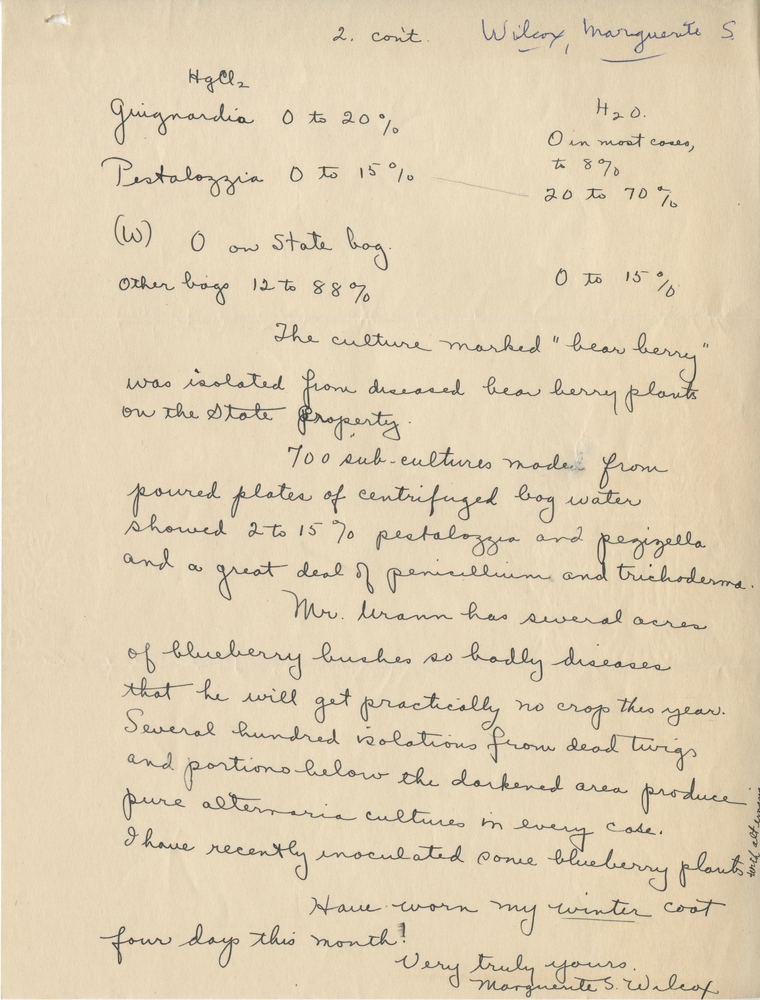 2. con't.
Wilcox, Marguerite S.
HgCl2
H2O.
Guignardia 0 to 20%
0 in most cases,
to 8%
Pestalozzia 0 to 15%
20 to 70%
(W) 0 on State bog.
Other bogs 12 to 88%
0 to 15%
The culture marked "bear berry"
was isolated from diseased bear berry plants
on the State Property.
700 sub-cultures made from
poured plates of centrifuged bog water
showed 2 to 15% pestalozzia and pezizella
and a great deal of penicillium and trichoderma.
Mr. Urann has several acres
of blueberry bushes so badly diseases
that he will get practically no crop this year.
Several hundred isolations from dead twigs
and portions below the darkened area produce
pure alternaria cultures in every case.
I have recently inoculated some blueberry plants
with alternaria
Have worn my winter coat
four days this month!
Very truly yours.
Marguerite S. Wilcox